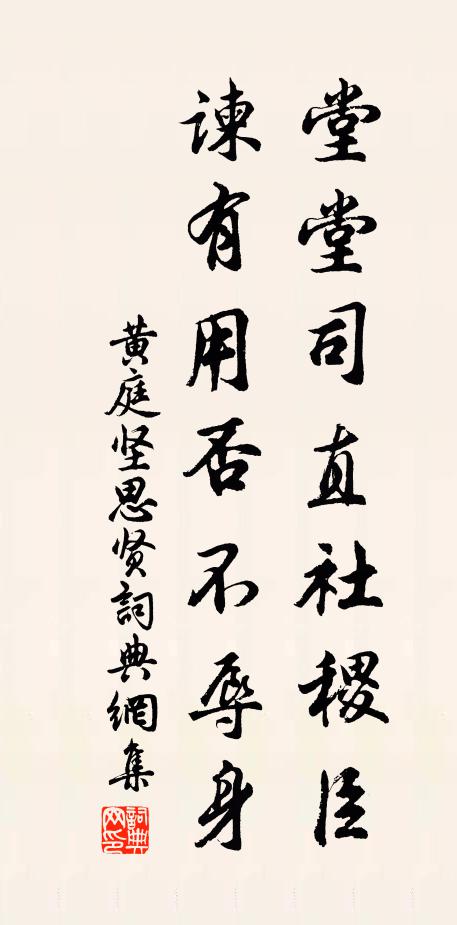 堂堂司直社稷臣
諫有用否不辱身
黄庭坚思贤詞典網集
詞典网印